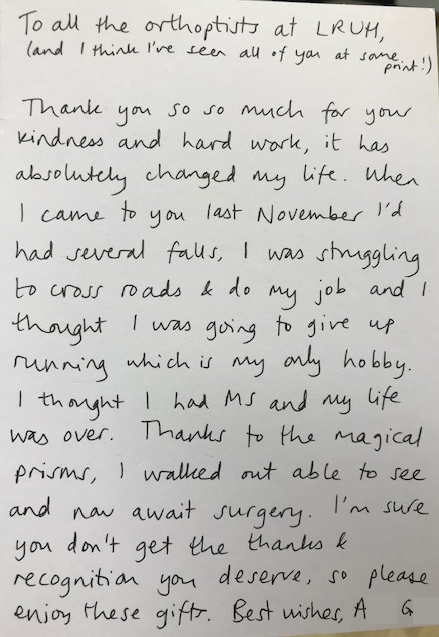 To all the orthoptists at LRUH,
(and I think I've seen all of you at some
point!)
Thank you so so much for your
kindness and hard work, it has
absolutely changed my life. When
I came to you last November I'd
had several falls, I was struggling
to cross roads & do my job and I
thought I was going to give up
running which is my only hobby.
I thought I had MS and my life
was over. Thanks to the magical
prisms, I walked out able to see
and now await surgery. I'm sure
you don't get the thanks &
recognition you deserve, so please
enjoy these gifts. Best wishes, A G